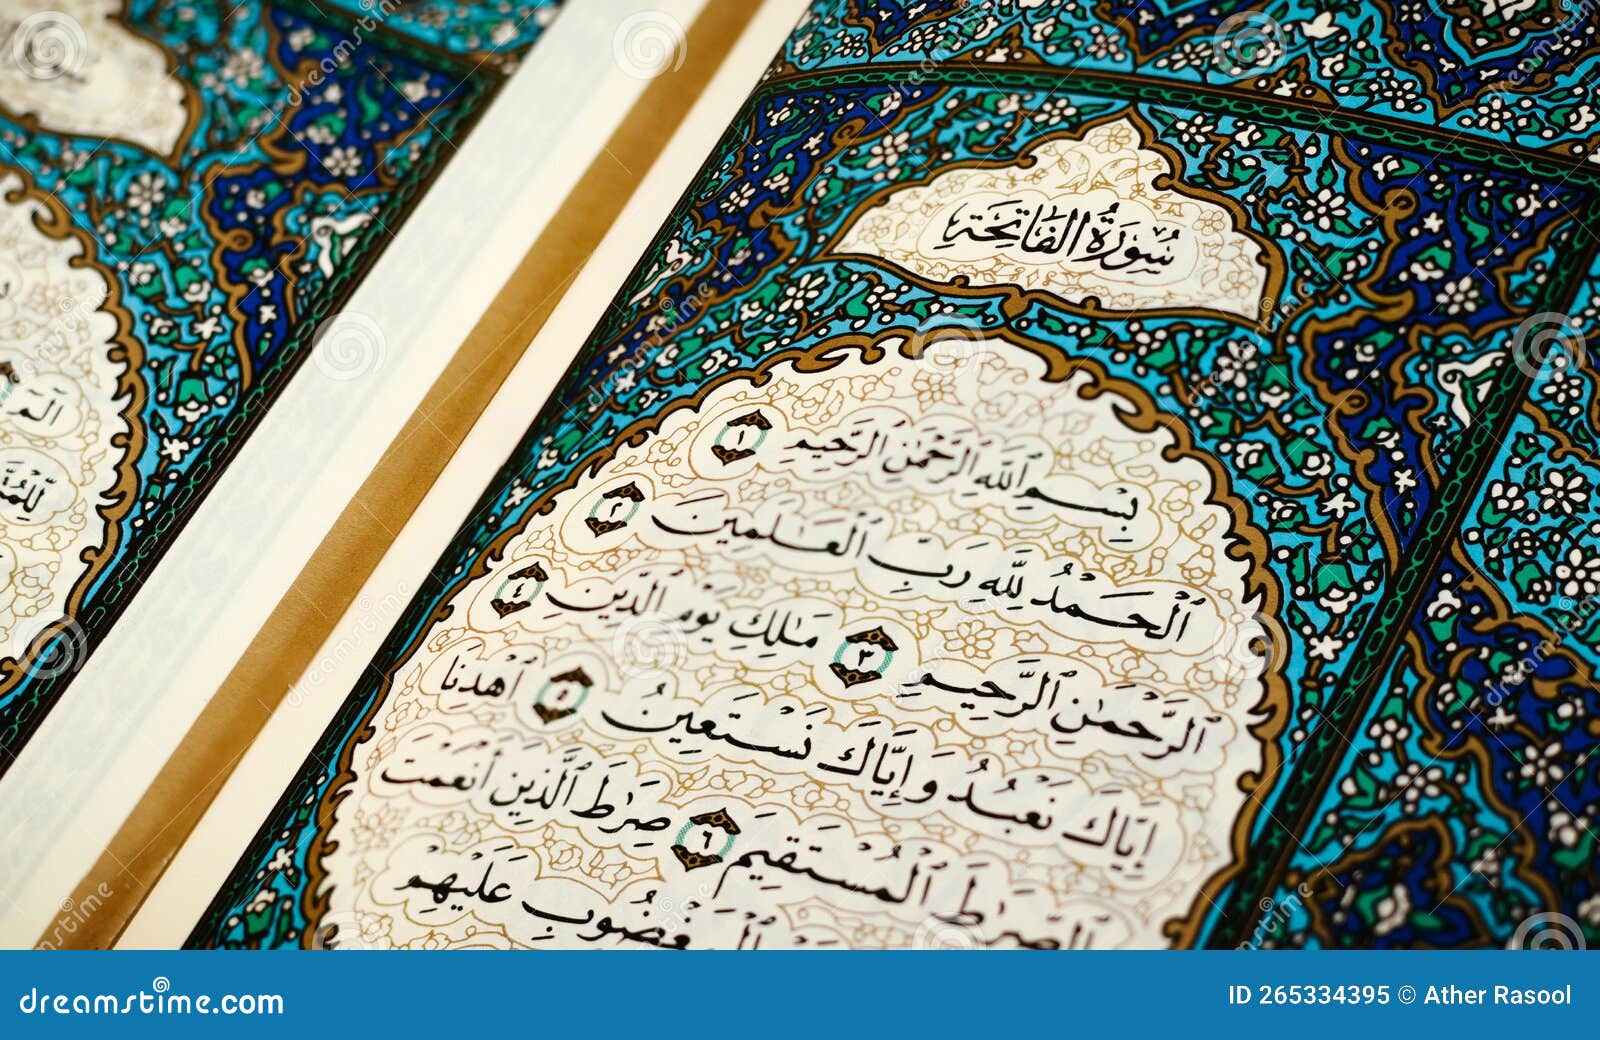 سُورَةُ الفَاتِحَة
بِسْمِ ٱللَّهِ ٱلرَّحْمَٰنِ ٱلرَّحِيمِ ١
ٱلْحَمْدُ لِلَّهِ رَبِّ ٱلْعَـٰلَمِينَ ٢
ٱلرَّحْمَٰنِ ٱلرَّحِيمِ ٣ مَـٰلِكِ يَوْمِ ٱلدِّينِ ٤
إِيَّاكَ نَعْبُدُ وَإِيَّاكَ نَسْتَعِينُ ٥ ٱهْدِنَا
ٱلصِّرَٰطَ ٱلْمُسْتَقِيمَ ٦ صِرَٰطَ ٱلَّذِينَ أَنْعَمْتَ
عَلَيْهِمْ
الٓمٓ
dreamstime.com
ID 265334395 © Ather Rasool